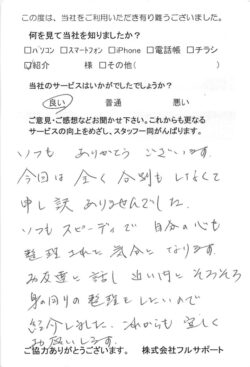 この度は、当社をご利用いただき有り難うございました。
何を見て当社を知りましたか?
□パソコン □スマートフォン □iPhone □電話帳 □チラシ
☑紹介 様 □その他( )
当社のサービスはいかがでしたでしょうか?
良い 普通 悪い
ご意見・ご感想などお聞かせ下さい。これからも更なる
サービスの向上をめざし、スタッフ一同がんばります。
いつも ありがとう ございます。
今回は 全く 分別も しなくて
申し訳 ありませんでした。
いつも スピーディで 自分の心も
整理 された 気分と なります。
お友達と 話し 出い円と そろそろ
身の回りの 整理を したいので
紹介しました。これからも 宜しく
お願いします。
ご協力ありがとうございます。 株式会社フルサポート